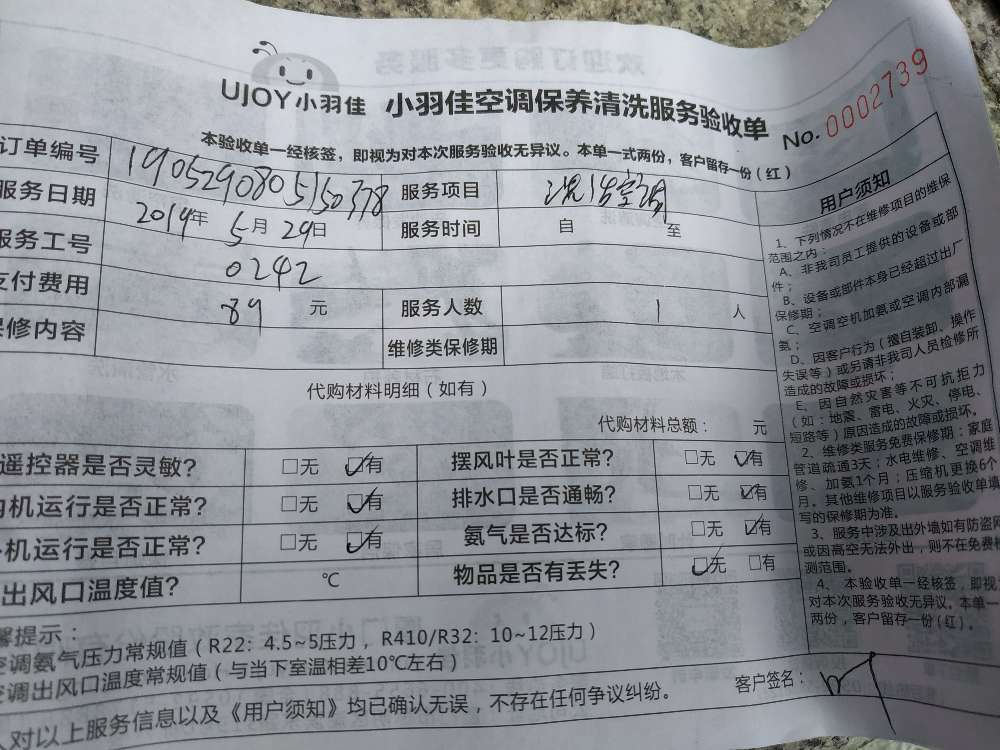 UJOY小羽佳 小羽佳空调保养清洗服务验收单 No. 0002739
本验收单一经核签，即视为对本次服务验收无异议。本单一式两份，客户留存一份（红）
订单编号 190529080515037 8 服务项目 洗活空调
服务日期 2019年 5月 29日 服务时间 自 至
服务工号 0242
支付费用 89 元 服务人数 1 人
保修内容 维修类保修期
代购材料明细（如有）
代购材料总额： 元
遥控器是否灵敏? □无 ☑有 摆风叶是否正常? □无 ☑有
机运行是否正常? □无 ☑有 排水口是否通畅? □无 ☑有
机运行是否正常? □无 ☑有 氨气是否达标? □无 ☑有
出风口温度值? ℃ 物品是否有丢失? ☑无 □有
馨提示：
空调氨气压力常规值（R22：4.5~5压力，R410/R32：10~12压力）
空调出风口温度常规值（与当下室温相差10℃左右）
对以上服务信息以及《用户须知》均已确认无误，不存在任何争议纠纷。
客户签名：
用户须知
1、下列情况不在维修项目的维保
范围之内：
A、非我司员工提供的设备或部
件；
B、设备或部件本身已经超过出厂
保修期；
C、空调空机加氨或空调内部漏
氨；
D、因客户行为（擅自装卸、操作
失误等）或另请非我司人员检修所
造成的故障或损坏；
E、因自然灾害等不可抗拒力
（如：地震、雷电、火灾、停电、
短路等）原因造成的故障或损坏。
2、维修类服务免费保修期：家庭
管道疏通3天；水电维修、空调维
修、加氨1个月；压缩机更换6个
月。其他维修项目以服务验收单填
写的保修期为准。
3、服务中涉及出外墙如有防盗网
或因高空无法外出，则不在免费检
测范围。
4、本验收单一经核签，即视
对本次服务验收无异议。本单一
两份，客户留存一份（红）。